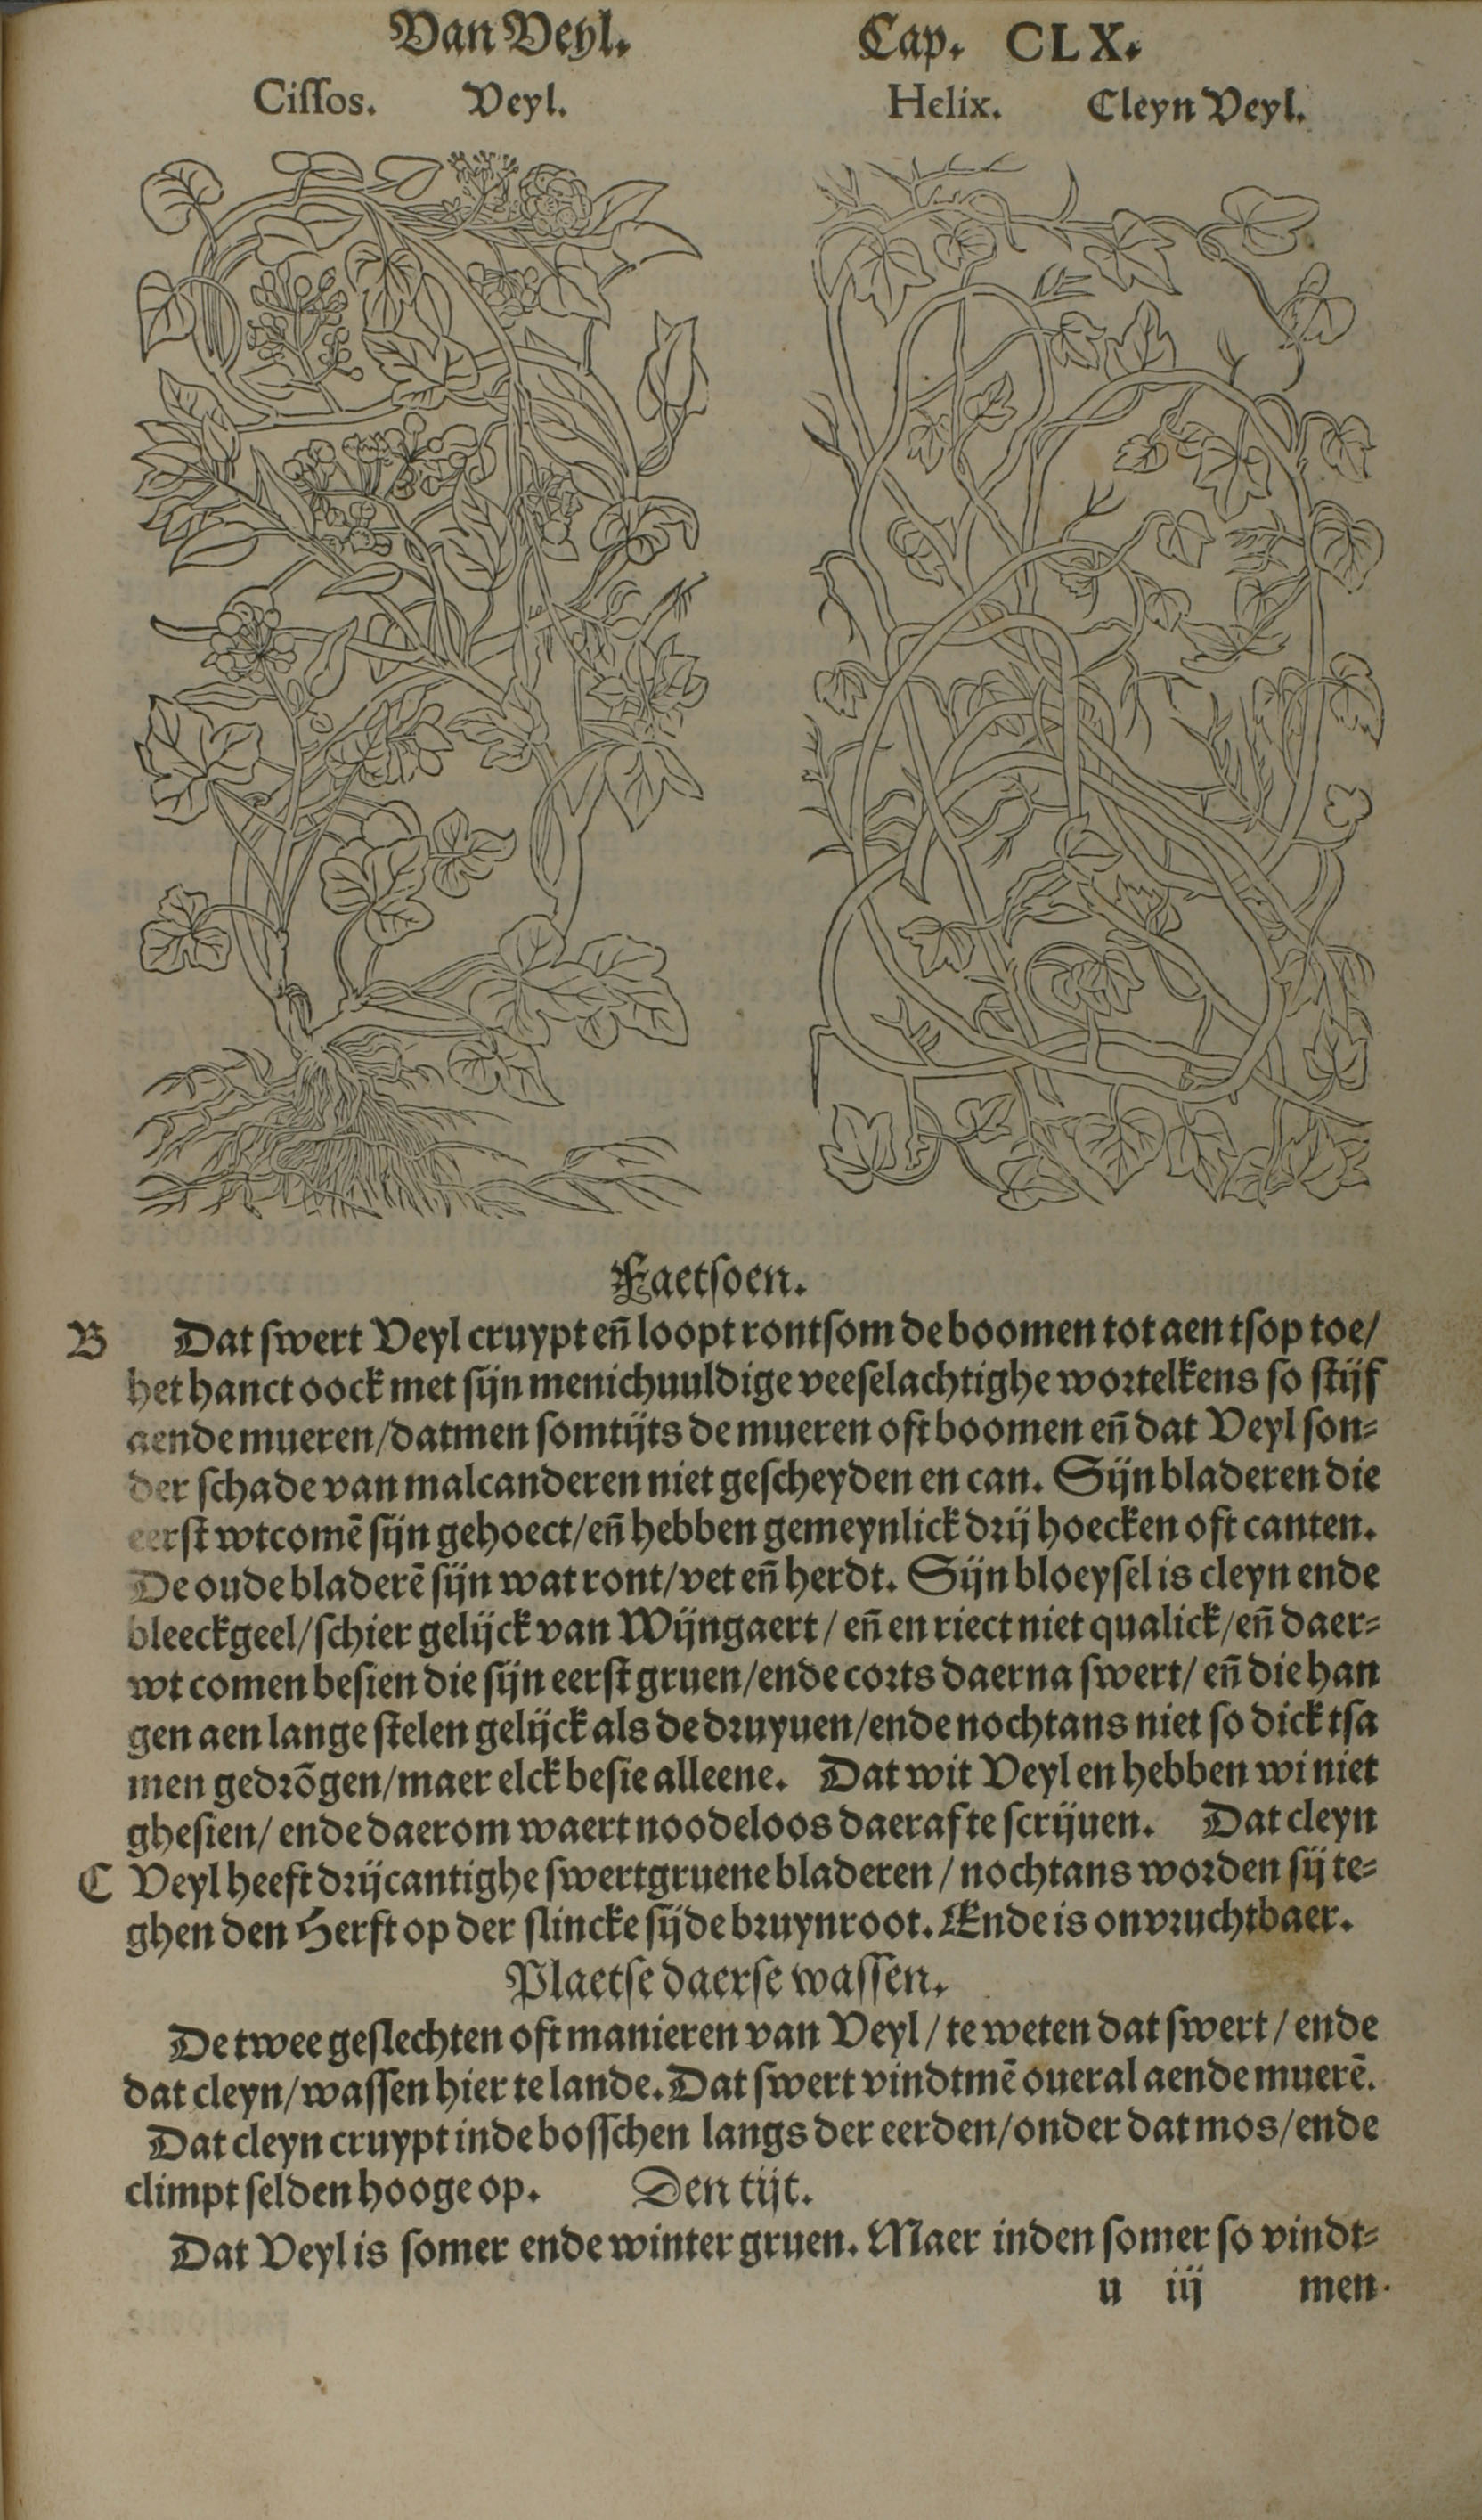 Van Veyl. Cap. CLX.
Cissos. Veyl. Helix. Cleyn Veyl.
Faetsoen.
B Dat swert Veyl cruypt eñ loopt rontsom de boomen tot aen tsop toe/
het hanct oock met sijn menichuuldige veeselachtighe wortelkens so stijf
aende mueren/datmen somtijts de mueren oft boomen eñ dat Veyl son-
der schade van malcanderen niet gescheyden en can. Sijn bladeren die
eerst wtcomẽ sijn gehoect/eñ hebben gemeynlick drij hoecken oft canten.
De oude bladerẽ sijn wat ront/vet eñ herdt. Sijn bloeysel is cleyn ende
bleeckgeel/schier gelijck van Wijngaert/ eñ en riect niet qualick/eñ daer-
wt comen besien die sijn eerst gruen/ende corts daerna swert/ eñ die han
gen aen lange stelen gelijck als de druyuen/ende nochtans niet so dick tsa
men gedrõgen/maer elck besie alleene. Dat wit Veyl en hebben wi niet
ghesien/ ende daerom waert noodeloos daeraf te scrijuen. Dat cleyn
C Veyl heeft drijcantighe swertgruene bladeren / nochtans worden sij te-
ghen den Herfst op der slincke sijde bruynroot. Ende is onvruchtbaer.
Plaetse daerse wassen.
De twee geslechten oft manieren van Veyl / te weten dat swert / ende
dat cleyn/wassen hier te lande. Dat swert vindtmẽ oueral aende muerẽ.
Dat cleyn cruypt inde bosschen langs der eerden/onder dat mos/ende
climpt selden hooge op. Den tijt.
Dat Veyl is somer ende winter gruen. Maer inden somer so vindt-
u iij men.